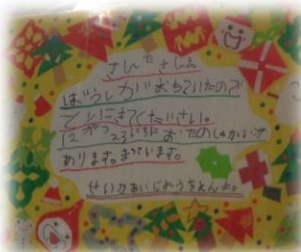 さんたさんえ
ぼうしがおちていたので
とりにきてください。
12がつ23にちに おたのしみかいが
あります。まっています。
せいかあいじようちえんより